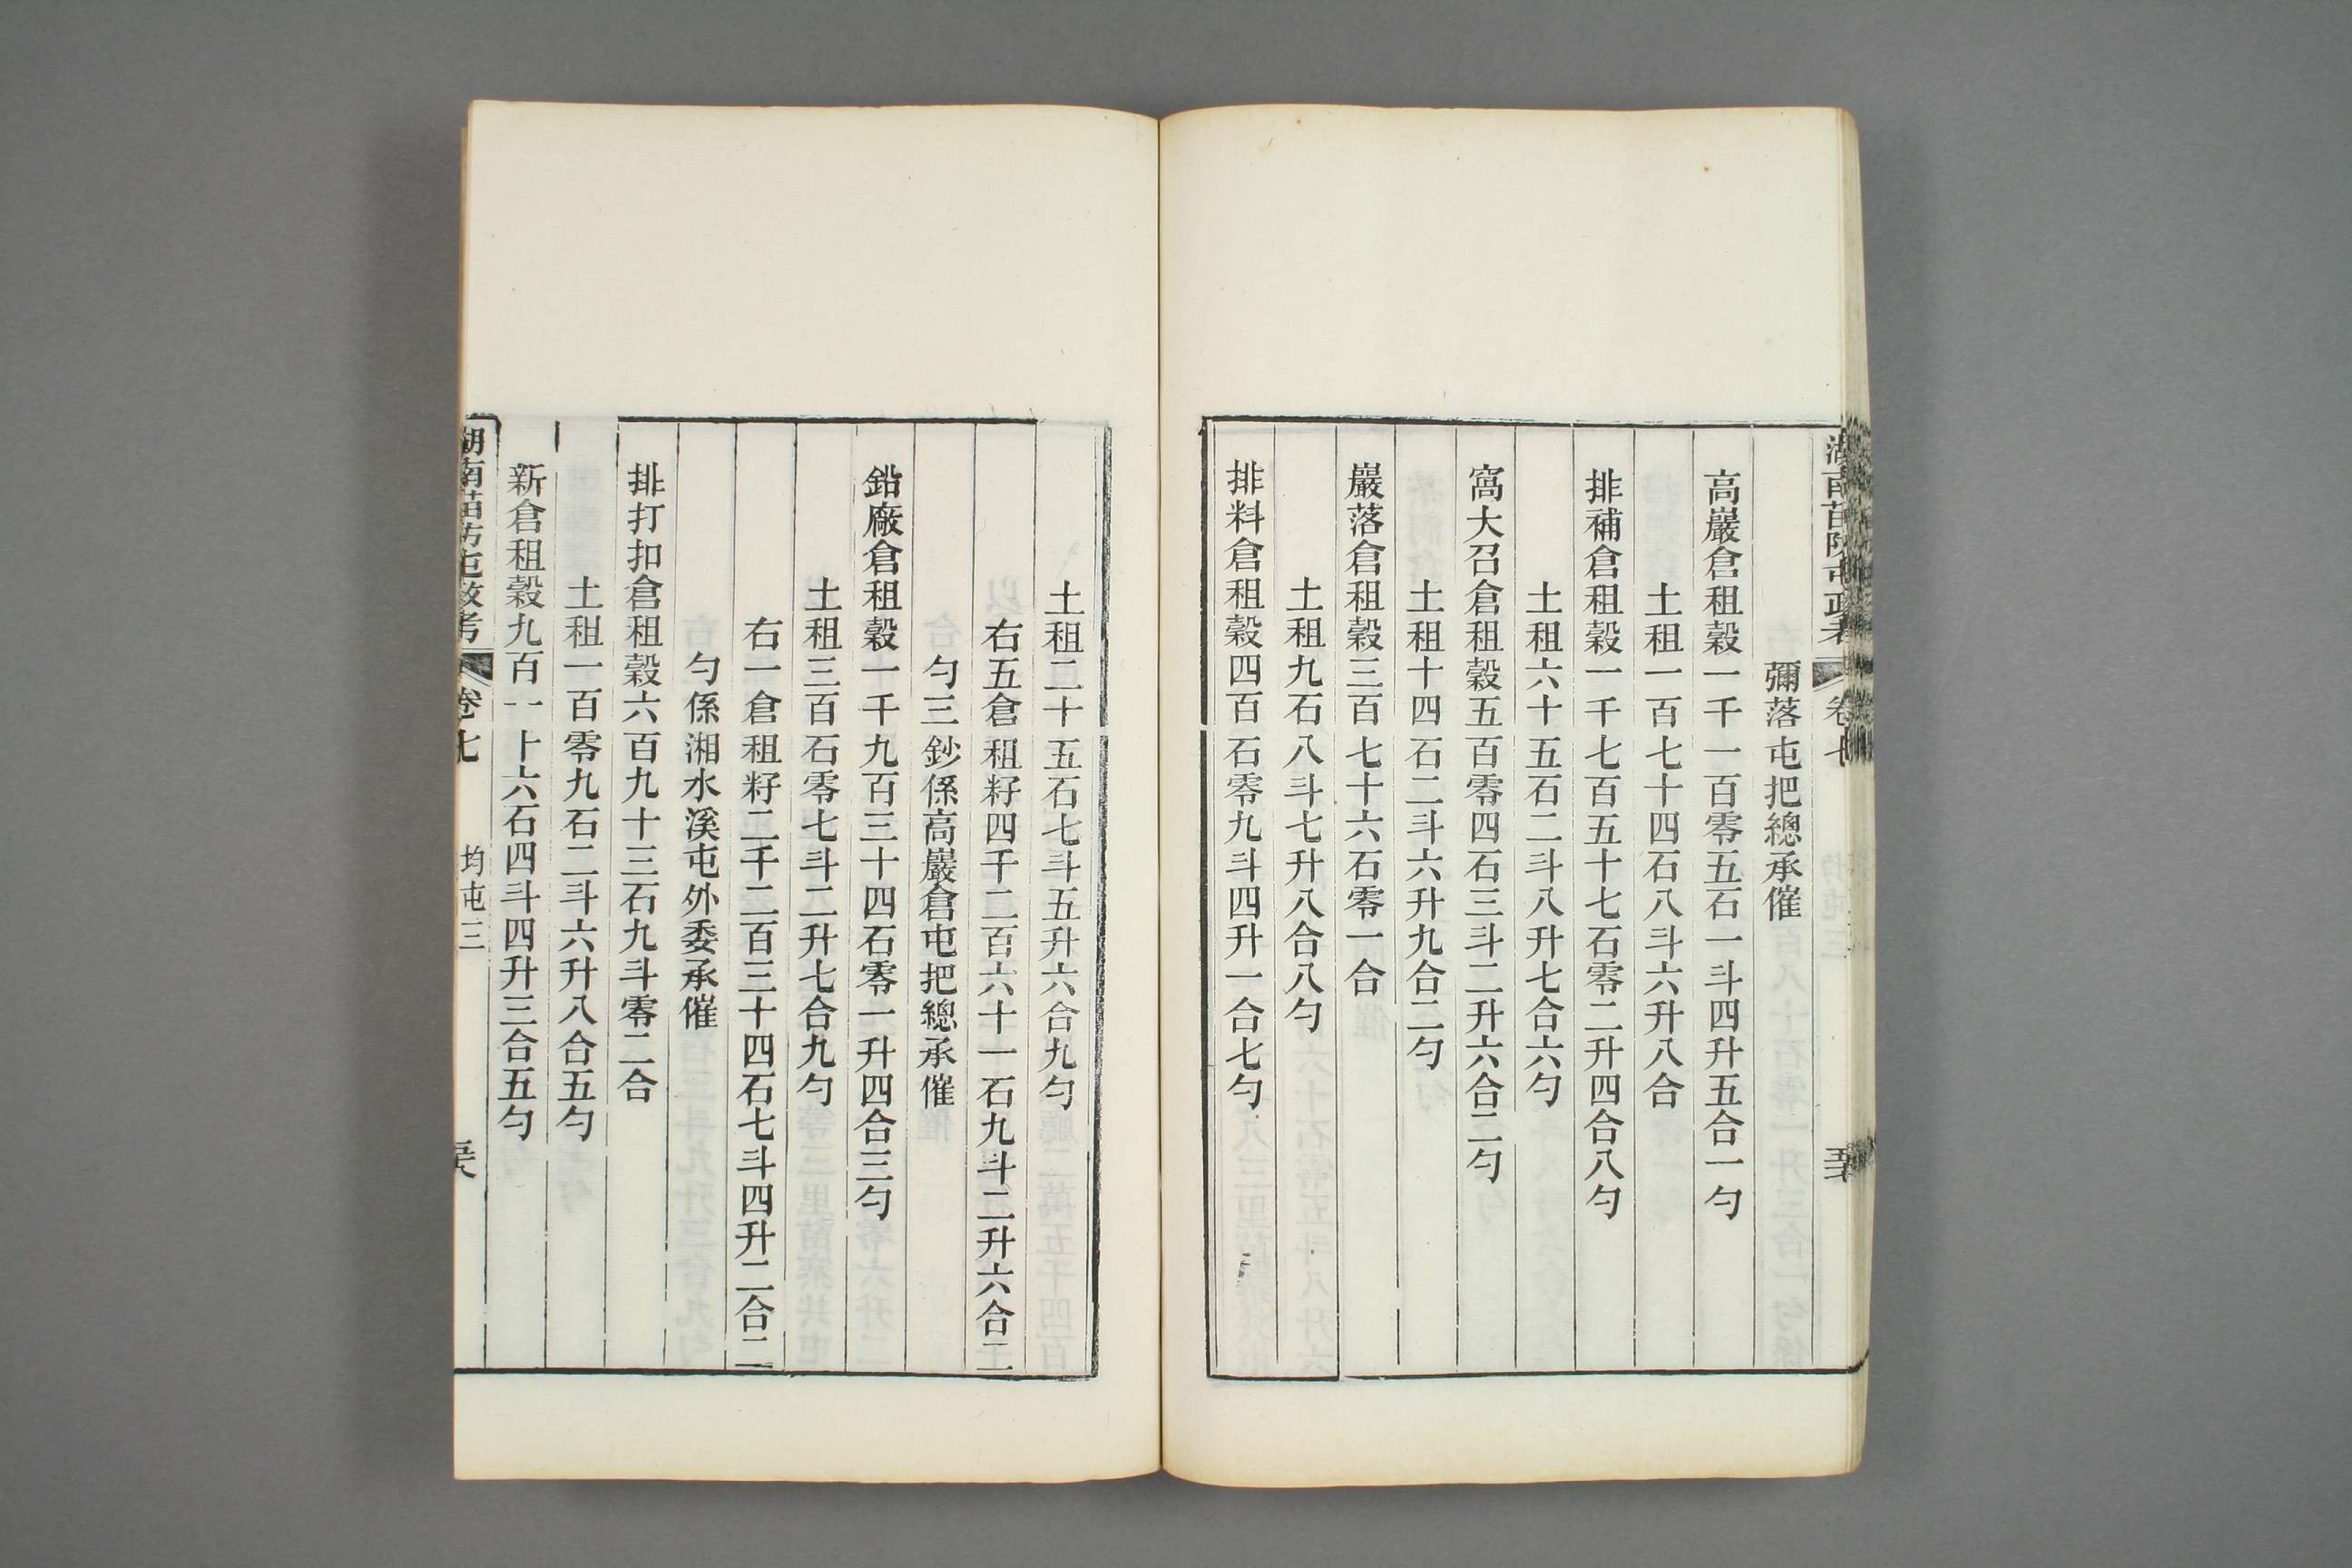 湖南苗防屯政考 卷七
彌落屯把總承催
高巖倉租穀一千一百零五石一斗四升五合一勺
土租一百七十四石八斗六升八合
排補倉租穀一千七百五十七石零二升四合八勺
土租六十五石二斗八升七合六勺
窩大召倉租穀五百零四石三斗二升六合二勺
土租十四石二斗六升九合二勺
巖落倉租穀三百七十六石零一合
土租九石八斗七升八合八勺
排料倉租穀四百石零九斗四升一合七勺
土租二十五石七斗五升六合九勺
右五倉租籽四千二百六十一石九斗二升六合二
勺三鈔係高巖倉屯把總承催
鉛廠倉租穀一千九百三十四石零一升四合三勺
土租三百石零七斗二升七合九勺
右一倉租籽二千二百三十四石七斗四升二合二
勺係湘水溪屯外委承催
排打扣倉租穀六百九十三石九斗零二合
土租一百零九石二斗六升八合五勺
新倉租穀九百一十六石四斗四升三合五勺
湖南苗防屯政考 卷七 均屯三